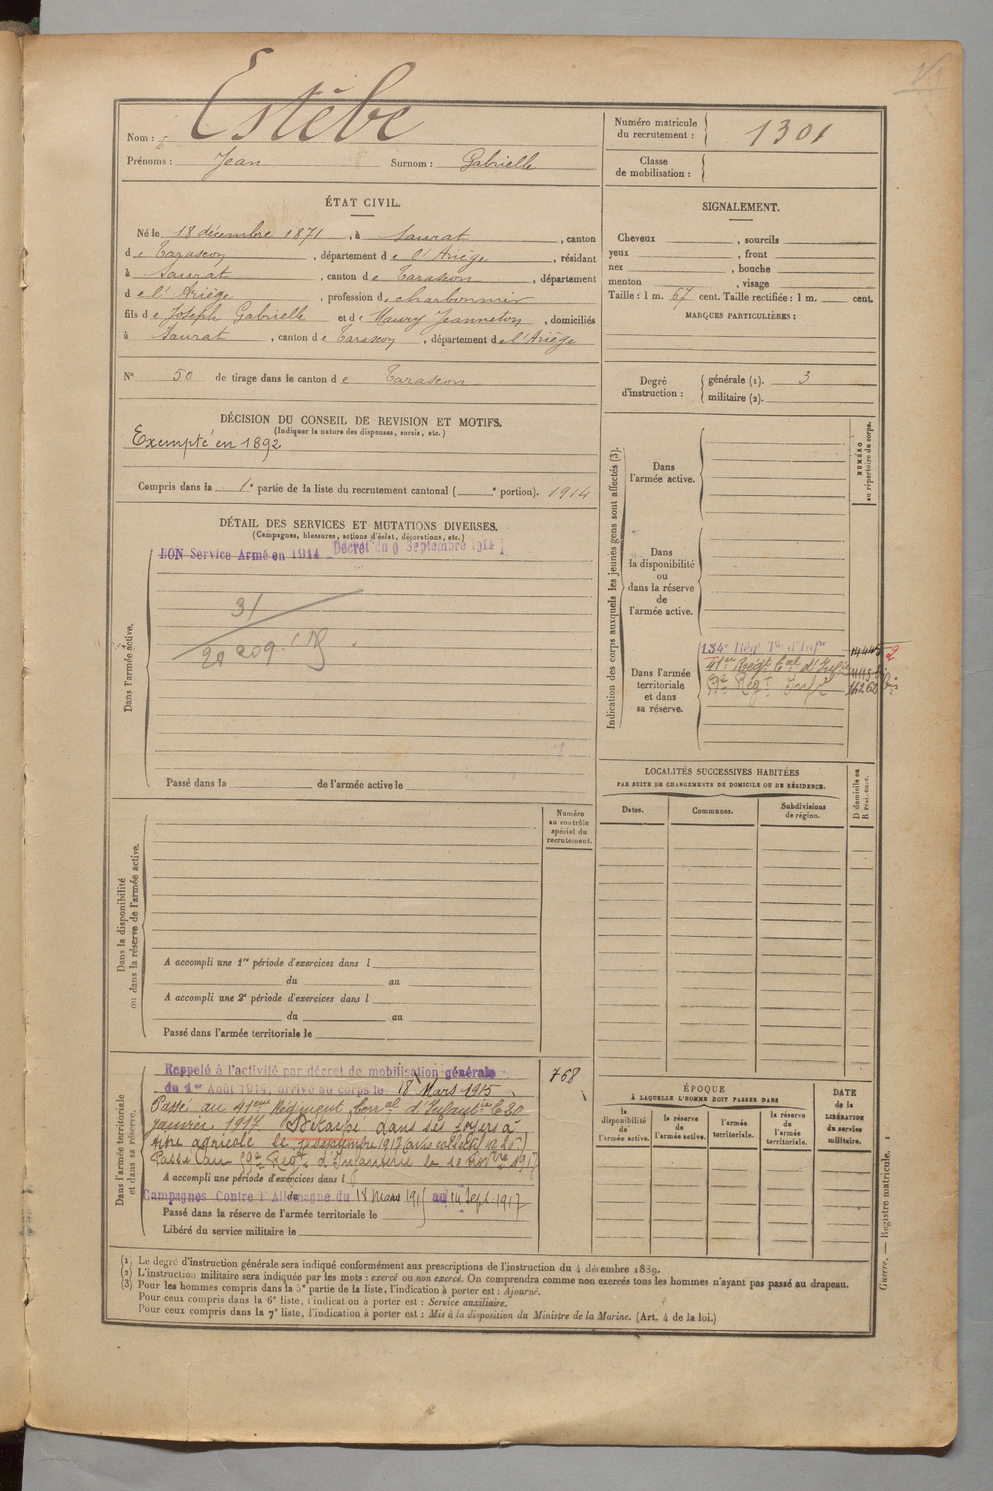 Estèbe
Nom :
Prénoms : Jean Surnom : Gabrielle
Numéro matricule du recrutement : 1301
Classe de mobilisation :
ÉTAT CIVIL.
Né le 18 décembre 1871, à Saurat, canton
de Tarascon, département de l'Ariège, résidant
à Saurat, canton de Tarascon, département
de l'Ariège, profession de charbonnier
fils de Joseph Gabrielle et de Maury Jeanneton, domiciliés
à Saurat, canton de Tarascon, département de l'Ariège
N° 50 de tirage dans le canton de Tarascon
SIGNALEMENT.
Cheveux , sourcils
yeux , front
nez , bouche
menton , visage
Taille : 1 m. 67 cent. Taille rectifiée : 1 m. cent.
MARQUES PARTICULIÈRES :
Degré d'instruction : générale (1). 3
militaire (2).
DÉCISION DU CONSEIL DE REVISION ET MOTIFS.
(Indiquer la nature des dispenses, sursis, etc.)
Exempté en 1892
Compris dans la 1e partie de la liste du recrutement cantonal ( e portion). 1914
DÉTAIL DES SERVICES ET MUTATIONS DIVERSES.
(Campagnes, blessures, actions d'éclat, décorations, etc.)
BON Service Armé en 1914 Décret du 9 Septembre 1914
31
20 209
Dans l'armée active.
Passé dans la de l'armée active le
Indication des corps auxquels les jeunes gens sont affectés (3).
NUMÉRO
au répertoire du corps.
Dans
l'armée active.
Dans
la disponibilité
ou
dans la réserve
de
l'armée active.
Dans l'armée
territoriale
et dans
sa réserve.
134e Rég. Tal d'Infie
41eme Régt Cal d'Infie
Régt Infie
2
LOCALITÉS SUCCESSIVES HABITÉES
PAR SUITE DE CHANGEMENTS DE DOMICILE OU DE RÉSIDENCE.
Dates.
Communes.
Subdivisions
de région.
D domicile ou
R résidence.
Numéro
au contrôle
spécial du
recrutement.
Dans la disponibilité
ou dans la réserve de l'armée active.
A accompli une 1re période d'exercices dans l
du au
A accompli une 2e période d'exercices dans l
du au
Passé dans l'armée territoriale le
Dans l'armée territoriale
et dans sa réserve.
Rappelé à l'activité par décret de mobilisation générale
du 1er Août 1914, arrivé au corps le 18 Mars 1915
768
Passé au 41eme Régiment Conal d'Infanterie le 20
janvier 1917 Détaché dans ses foyers à
titre agricole le 7 septembre 1917
Passé au Régt d'Infanterie le 10 Novbre 1917
A accompli une période d'exercices dans l
Campagnes Contre l'Allemagne du 18 Mars 1915 au 14 Sept. 1917
Passé dans la réserve de l'armée territoriale le
Libéré du service militaire le
ÉPOQUE
À LAQUELLE L'HOMME DOIT PASSER DANS
la
disponibilité
de
l'armée active.
la réserve
de
l'armée active.
l'armée
territoriale.
la réserve
de
l'armée
territoriale.
DATE
de la
LIBÉRATION
du service
militaire.
Guerre. — Registre matricule.
(1) Le degré d'instruction générale sera indiqué conformément aux prescriptions de l'instruction du 4 décembre 1889.
(2) L'instruction militaire sera indiquée par les mots : exercé ou non exercé. On comprendra comme non exercés tous les hommes n'ayant pas passé au drapeau.
(3) Pour les hommes compris dans la 5e partie de la liste, l'indication à porter est : Ajourné.
Pour ceux compris dans la 6e liste, l'indication à porter est : Service auxiliaire.
Pour ceux compris dans la 7e liste, l'indication à porter est : Mis à la disposition du Ministre de la Marine. (Art. 4 de la loi.)